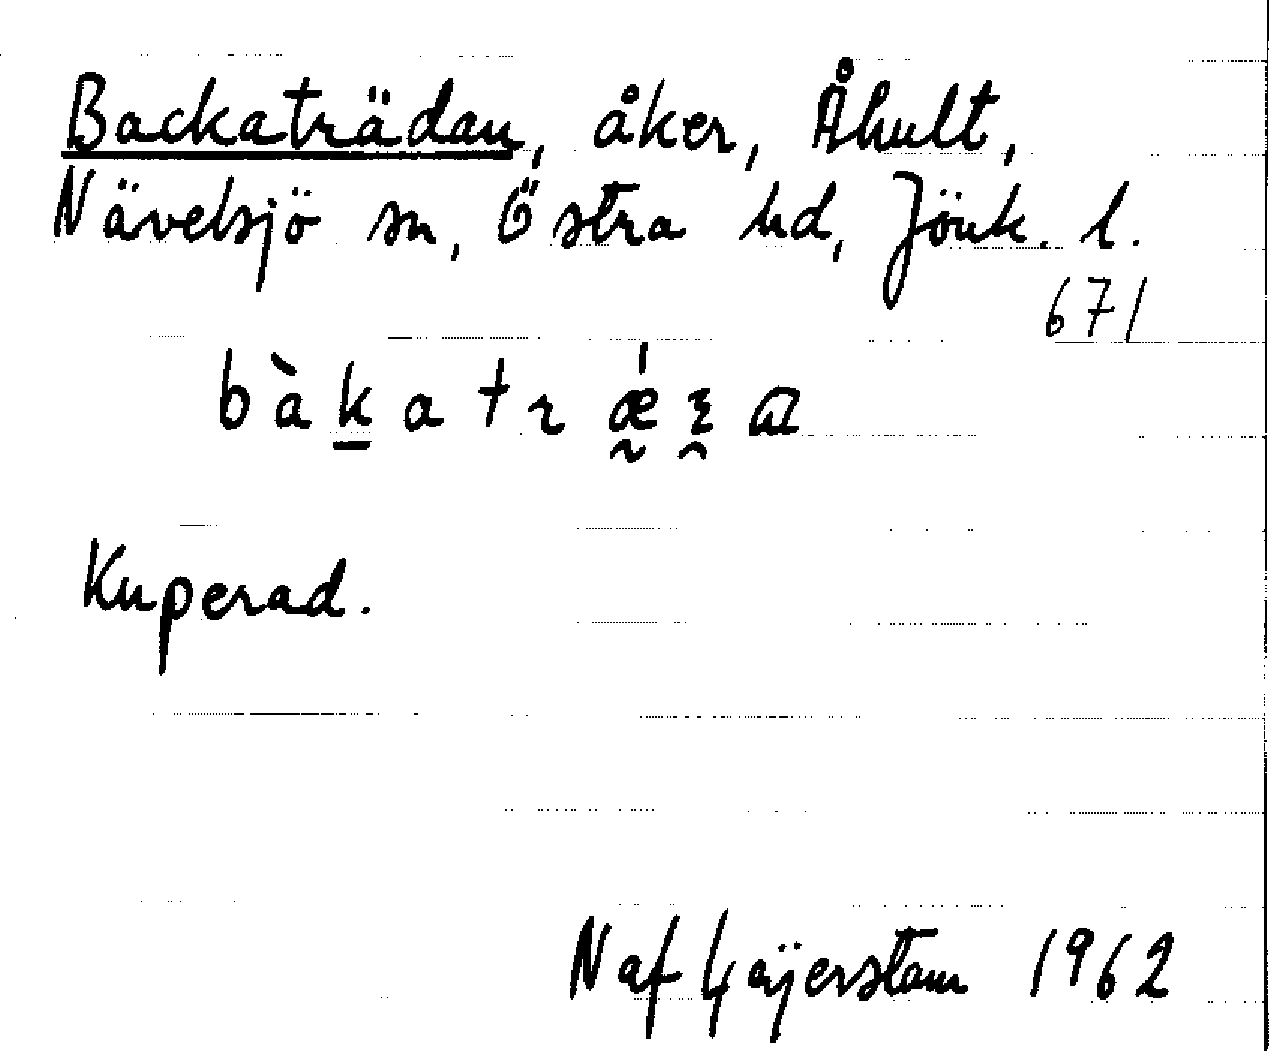 Backaträdan, åker, Åhult,
Nävelsjö sn, Östra hd, Jönk. l.
671
bàkatrǽ
Kuperad.
Naf Gäijerstam 1962